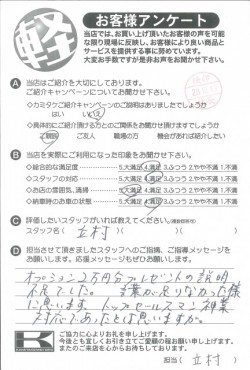 軽
お客様アンケート
当店では、お買い上げ頂いたお客様の声を可能
な限り現場に反映し、お客様により良い商品と
サービスを提供する事に努めています。
大変お手数ですが是非お声をお聞かせ下さい。
A 当店はご紹介を大切にしております。
ご紹介キャンペーンについてお聞かせ下さい。
・カミタケご紹介キャンペーンのご説明はありましたでしょうか
はい いいえ
・具体的にご紹介頂ける方とのご関係をお聞かせ頂けますでしょうか
ご親戚 ご友人 職場の方 機会があれば紹介したい
B 当店を実際にご利用になった印象をお聞かせ下さい。
・総合的な満足度 5.大満足 4.満足 3.ふつう 2.やや不満 1.不満
・スタッフの対応 5.大満足 4.満足 3.ふつう 2.やや不満 1.不満
・お店の雰囲気、清掃 5.大満足 4.満足 3.ふつう 2.やや不満 1.不満
・納車時のお車の状態 5.大満足 4.満足 3.ふつう 2.やや不満 1.不満
C 評価したいスタッフがいれば教えてください。
スタッフ名( 立村 )
D 担当させて頂きましたスタッフへのご指摘、ご指導メッセージを
お願い致します。応援メッセージもぜひお願い致します。
オプション2万円分プレゼントの説明
不足でした。 言葉が足りなかった様
に思います。トップセールスマン
対応であったとは思いますが。
ご協力に心よりお礼を申し上げます。
今後とも宜しくお引き立てご愛顧の程お願い申し上げます。
またのご来店を心からお待ちしております。
担当( 立村 )